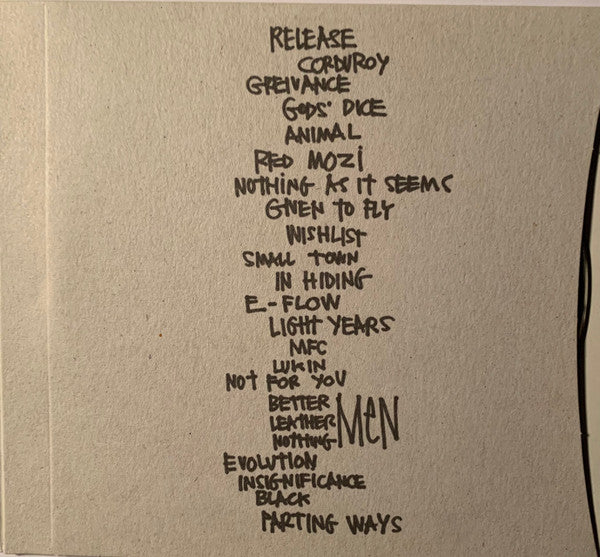 RELEASE
CORDUROY
GREIVANCE
GODS' DICE
ANIMAL
RED MOZI
NOTHING AS IT SEEMS
GIVEN TO FLY
WISHLIST
SMALL TOWN
IN HIDING
E-FLOW
LIGHT YEARS
MFC
LUKIN
NOT FOR YOU
BETTER
LEATHER MEN
NOTHING
EVOLUTION
INSIGNIFICANCE
BLACK
PARTING WAYS